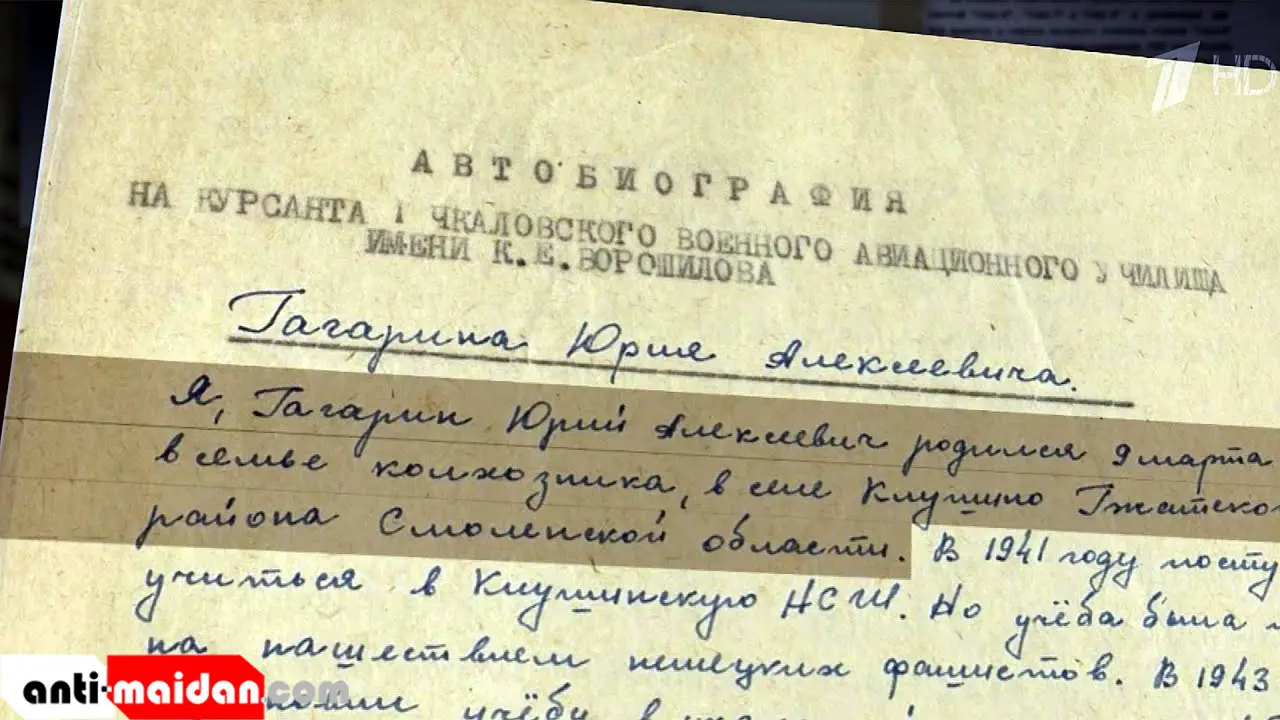 HD
АВТОБИОГРАФИЯ
НА КУРСАНТА 1 ЧКАЛОВСКОГО ВОЕННОГО АВИАЦИОННОГО УЧИЛИЩА
ИМЕНИ К.Е.ВОРОШИЛОВА
Гагарина Юрия Алексеевича.
Я, Гагарин Юрий Алексеевич родился 9 марта
в семье колхозника, в селе Клушино Гжатско
района Смоленской области. В 1941 году посту
учиться в Клушинскую НСШ. Но учёба была
на нашествием немецких фашистов. В 1943
учёбу в
anti-maidan.com